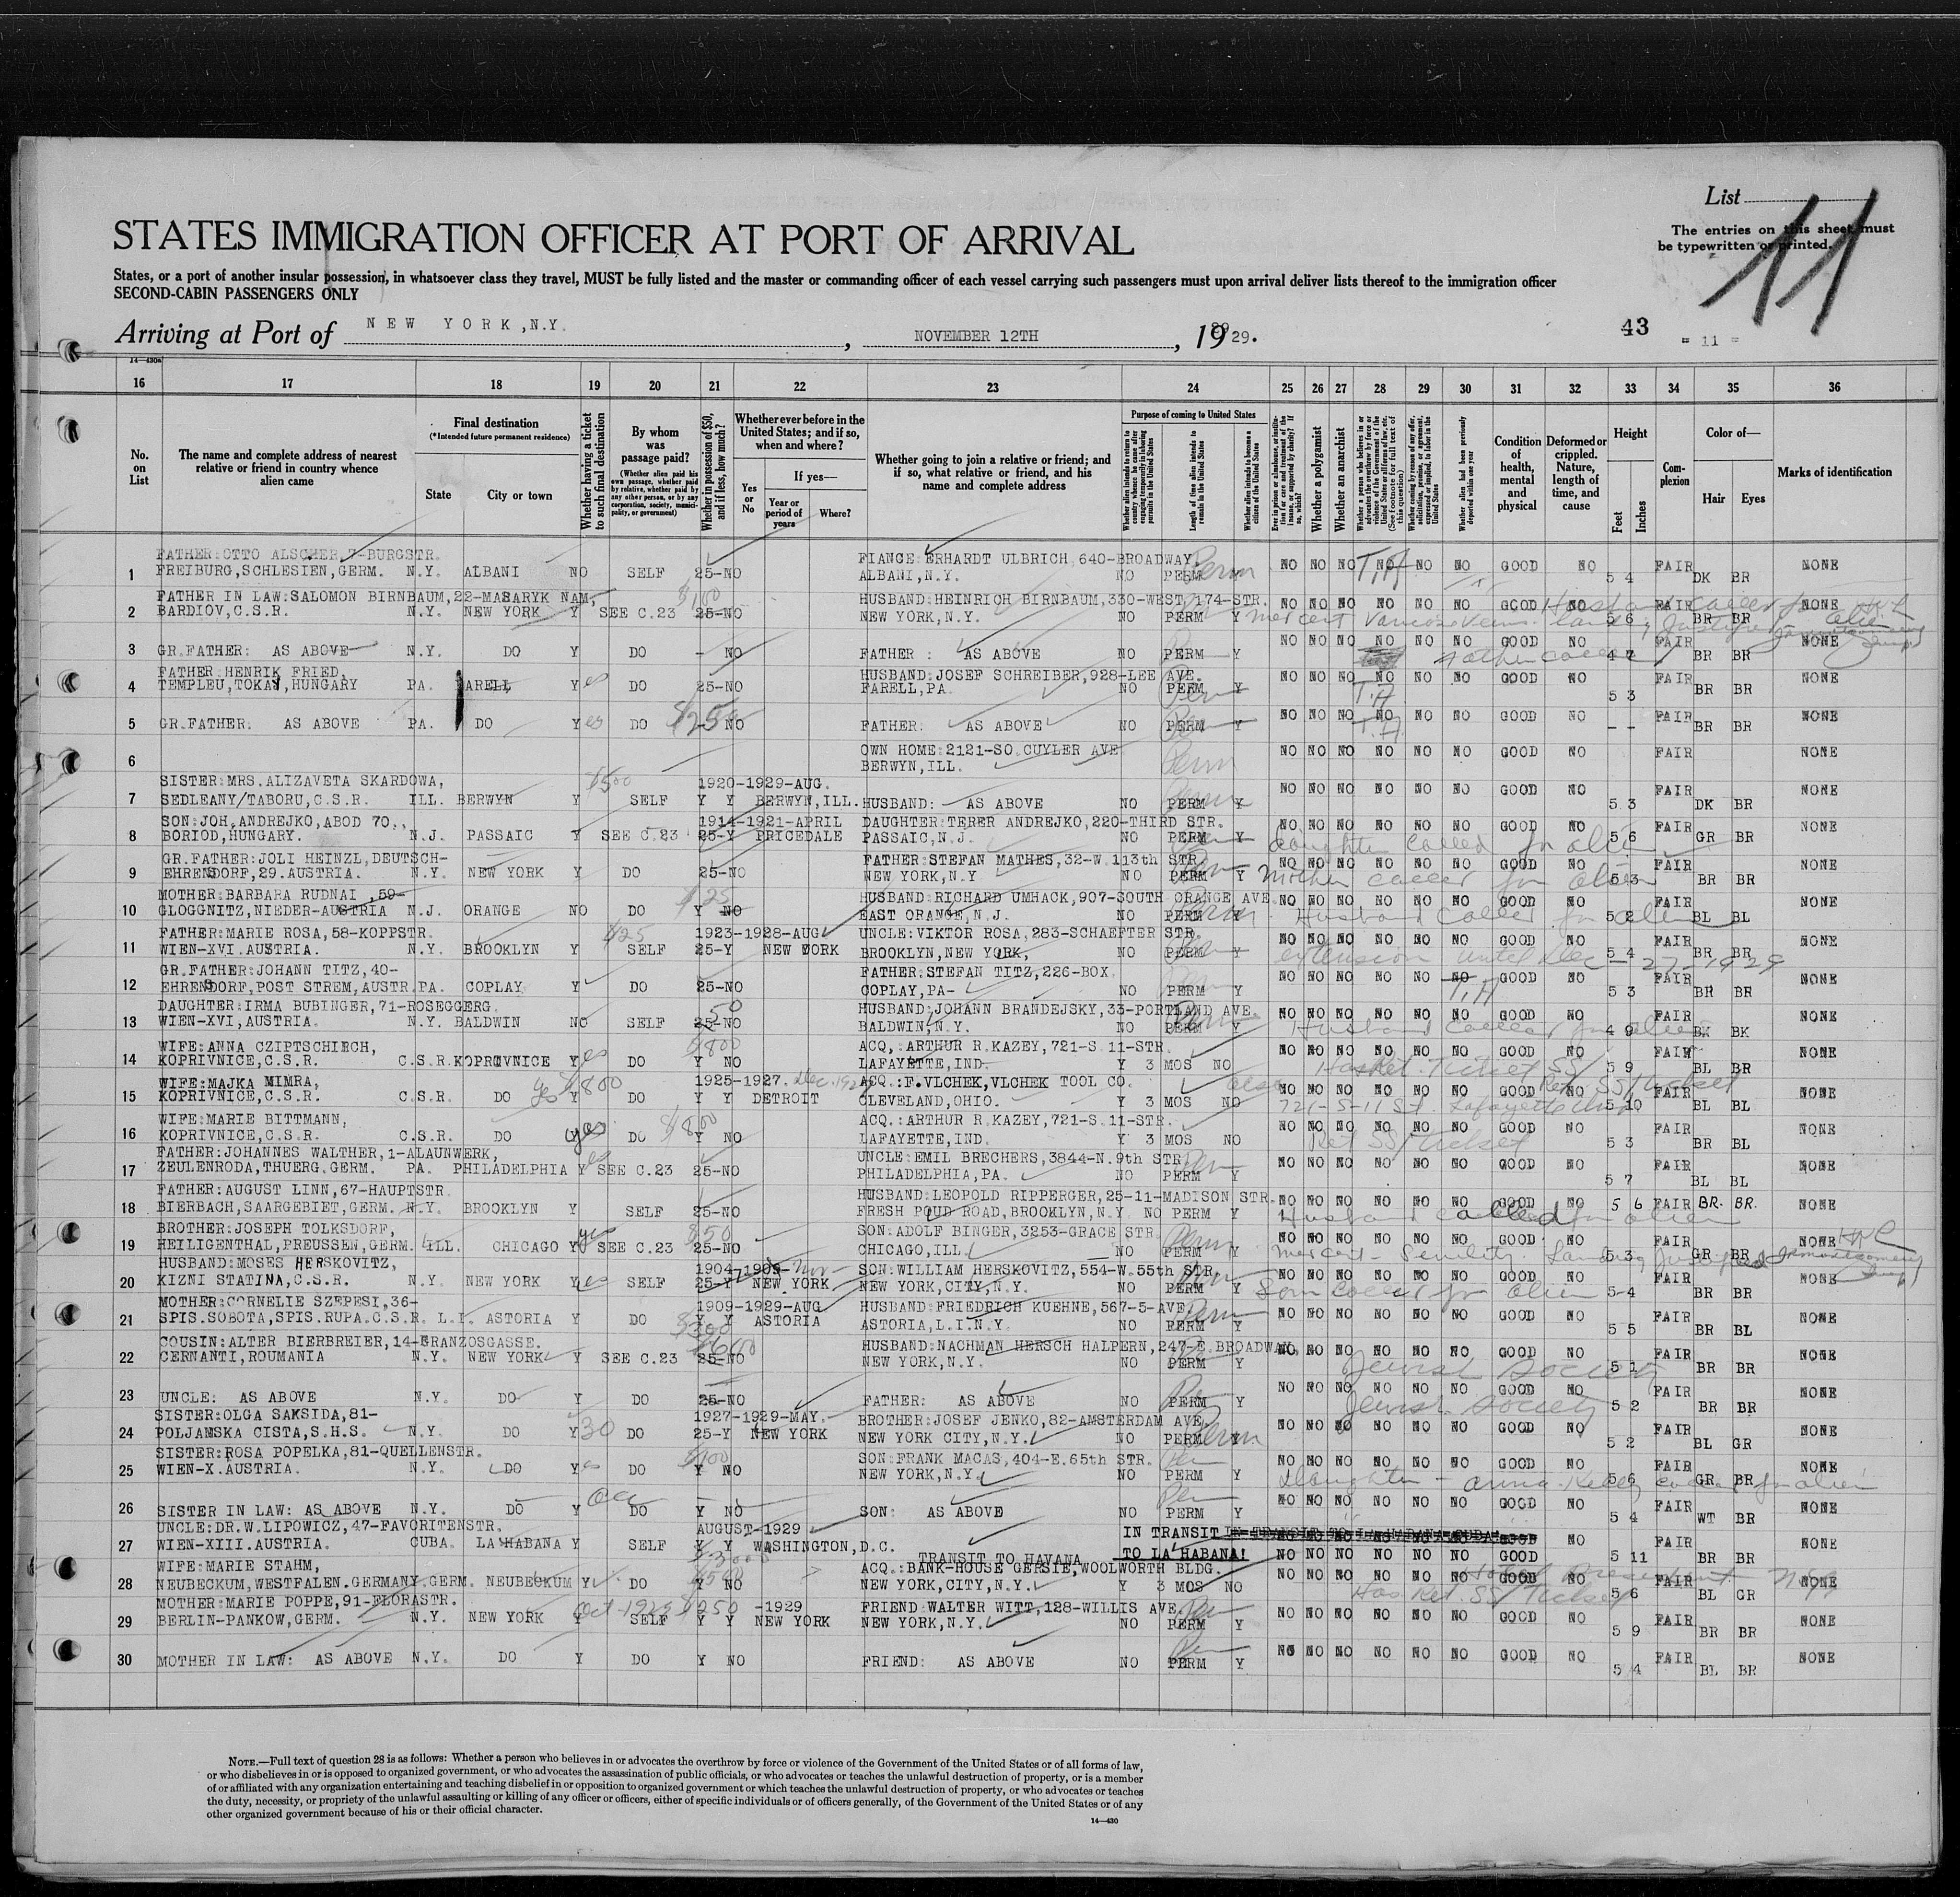 List
11
The entries on this sheet must
be typewritten or printed.
STATES IMMIGRATION OFFICER AT PORT OF ARRIVAL
States, or a port of another insular possession, in whatsoever class they travel, MUST be fully listed and the master or commanding officer of each vessel carrying such passengers must upon arrival deliver lists thereof to the immigration officer
SECOND-CABIN PASSENGERS ONLY
Arriving at Port of NEW YORK, N.Y. , NOVEMBER 12TH , 1929.
43
= 11 =
14-430a
16 17 18 19 20 21 22 23 24 25 26 27 28 29 30 31 32 33 34 35 36
No. on List
The name and complete address of nearest relative or friend in country whence alien came
Final destination
(*Intended future permanent residence)
State City or town
Whether having a ticket to such final destination
By whom was passage paid?
(Whether alien paid his own passage, whether paid by relative, whether paid by any other person, or by any corporation, society, municipality, or government)
Whether in possession of $50, and if less, how much?
Whether ever before in the United States; and if so, when and where?
Yes or No
If yes—
Year or period of years Where?
Whether going to join a relative or friend; and if so, what relative or friend, and his name and complete address
Purpose of coming to United States
Whether alien intends to return to country whence he came after engaging temporarily in laboring pursuits in the United States
Length of time alien intends to remain in the United States
Whether alien intends to become a citizen of the United States
Whether a polygamist
Whether an anarchist
Whether alien had been previously deported within one year
Condition of health, mental and physical
Deformed or crippled. Nature, length of time, and cause
Height
Feet Inches
Complexion
Color of—
Hair Eyes
Marks of identification
FATHER:OTTO ALSCHER,7-BURGSTR. FIANCE:ERHARDT ULBRICH,640-BROADWAY.
1 FREIBURG,SCHLESIEN,GERM. N.Y. ALBANI NO SELF 25-NO ALBANI,N.Y. NO PERM Y NO NO NO NO NO NO GOOD NO 5 4 FAIR DK BR NONE
FATHER IN LAW:SALOMON BIRNBAUM,22-MASARYK NAM, HUSBAND:HEINRICH BIRNBAUM,330-WEST,174-STR.
2 BARDIOV,C.S.R. N.Y. NEW YORK Y SEE C.23 25-NO NEW YORK,N.Y. NO PERM Y NO NO NO NO NO NO GOOD NO 5 6 FAIR BR BR NONE
3 GR.FATHER: AS ABOVE N.Y. DO Y DO - NO FATHER : AS ABOVE NO PERM Y NO NO NO NO NO NO GOOD NO 4 7 FAIR BR BR NONE
FATHER HENRIK FRIED, HUSBAND:JOSEF SCHREIBER,928-LEE AVE.
4 TEMPLEU,TOKAY,HUNGARY PA. FARELL Yes DO 25-NO FARELL,PA. NO PERM Y NO NO NO NO NO NO GOOD NO 5 3 FAIR BR BR NONE
5 GR.FATHER. AS ABOVE PA. DO Yes DO - NO FATHER: AS ABOVE NO PERM Y NO NO NO NO NO NO GOOD NO - - FAIR BR BR NONE
OWN HOME:2121-SO.CUYLER AVE
6 BERWYN,ILL. Perm NO NO NO NO NO NO GOOD NO FAIR NONE
SISTER:MRS.ALIZAVETA SKARDOWA, $500 1920-1929-AUG.
7 SEDLEANY/TABORU,C.S.R. ILL. BERWYN Y SELF Y Y BERWYN,ILL. HUSBAND: AS ABOVE NO PERM Y NO NO NO NO NO NO GOOD NO 5 3 FAIR DK BR NONE
SON:JOH,ANDREJKO,ABOD 70., 1914-1921-APRIL DAUGHTER:TERER ANDREJKO,220-THIRD STR.
8 BORIOD,HUNGARY. N.J. PASSAIC Y SEE C.23 25-Y PRICEDALE PASSAIC,N.J. NO PERM Y NO NO NO NO NO NO GOOD NO 5 6 FAIR GR BR NONE
daughter called for alien
GR.FATHER:JOLI HEINZL,DEUTSCH- FATHER:STEFAN MATHES,32-W.113th STR.
9 EHRENSDORF,29.AUSTRIA. N.Y. NEW YORK Y DO 25-NO NEW YORK,N.Y NO PERM Y NO NO NO NO NO NO GOOD NO 5 3 FAIR BR BR NONE
Mother called for alien
MOTHER:BARBARA RUDNAI ,59- HUSBAND:RICHARD UMHACK,907-SOUTH ORANGE AVE.
10 GLOGGNITZ,NIEDER-AUSTRIA N.J. ORANGE NO DO Y NO EAST ORANGE,N.J. NO PERM NO NO NO NO NO NO GOOD NO 5 2 FAIR BL BL NONE
Husband called for alien
FATHER:MARIE ROSA,58-KOPPSTR. $25 1923-1928-AUG. UNCLE:VIKTOR ROSA,283-SCHAEFTER STR.
11 WIEN-XVI.AUSTRIA. N.Y. BROOKLYN Y SELF 25-Y NEW YORK BROOKLYN,NEW YORK, NO PERM Y NO NO NO NO NO NO GOOD NO 5 4 FAIR BR BR NONE
extension until Dec-27-1929
GR.FATHER:JOHANN TITZ,40- FATHER:STEFAN TITZ,226-BOX.
12 EHRENSDORF,POST STREM,AUSTR.PA. COPLAY Y DO 25-NO COPLAY,PA- NO PERM Y NO NO NO NO NO NO GOOD NO 5 3 FAIR BR BR NONE
DAUGHTER:IRMA BUBINGER,71-ROSEGGERG. 50 HUSBAND:JOHANN BRANDEJSKY,33-PORTLAND AVE.
13 WIEN-XVI,AUSTRIA. N.Y. BALDWIN NO SELF 25-NO BALDWIN,N.Y. NO PERM Y NO NO NO NO NO NO GOOD NO 4 9 FAIR BK BK NONE
Husband called for alien
WIFE:ANNA CZIPTSCHIRCH, $800 ACQ,:ARTHUR R.KAZEY,721-S.11-STR.
14 KOPRIVNICE,C.S.R. C.S.R.KOPRIVNICE Yes DO Y NO LAFAYETTE,IND. Y 3 MOS NO NO NO NO NO NO NO GOOD NO 5 9 FAIR BL BR NONE
Has Ret. Ticket SS
WIFE:MAJKA MIMRA, $800 1925-1927. ACQ.:F.VLCHEK,VLCHEK TOOL CO.
15 KOPRIVNICE,C.S.R. C.S.R. DO Y DO Y Y DETROIT CLEVELAND,OHIO. Y 3 MOS NO NO NO NO NO NO NO GOOD NO 5 10 FAIR BL BL NONE
WIFE:MARIE BITTMANN, $800 ACQ.:ARTHUR R.KAZEY,721-S.11-STR.
16 KOPRIVNICE,C.S.R. C.S.R. DO yes DO Y NO LAFAYETTE,IND. Y 3 MOS NO NO NO NO NO NO NO GOOD NO 5 3 FAIR BR BL NONE
Ret SS/Ticket
FATHER:JOHANNES WALTHER,1-ALAUNWERK, UNCLE:EMIL BRECHERS,3844-N.9th STR
17 ZEULENRODA,THUERG.GERM. PA. PHILADELPHIA Y SEE C.23 25-NO PHILADELPHIA,PA. NO PERM Y NO NO NO NO NO NO GOOD NO 5 7 FAIR BL BL NONE
FATHER:AUGUST LINN,67-HAUPTSTR. HUSBAND:LEOPOLD RIPPERGER,25-11-MADISON STR.
18 BIERBACH,SAARGEBIET,GERM. N.Y. BROOKLYN Y SELF 25-NO FRESH POUD ROAD,BROOKLYN,N.Y. NO PERM Y NO NO NO NO NO NO GOOD NO 5 6 FAIR BR. BR. NONE
Husband called for alien
BROTHER:JOSEPH TOLKSDORF, $50 SON:ADOLF BINGER,3253-GRACE STR.
19 HEILIGENTHAL,PREUSSEN,GERM. ILL. CHICAGO Y SEE C.23 25-NO CHICAGO,ILL. NO PERM Y NO NO NO NO NO NO GOOD NO 5 3 FAIR GR BR NONE
HUSBAND:MOSES HERSKOVITZ, 1904-1909- SON:WILLIAM HERSKOVITZ,554-W.55th STR.
20 KIZNI STATINA,C.S.R. N.Y. NEW YORK Yes SELF 25-Y NEW YORK NEW YORK,CITY,N.Y. NO PERM Y NO NO NO NO NO NO GOOD NO 5-4 FAIR BR BR NONE
Son called for alien
MOTHER:CORNELIE SZEPESI,36- 1909-1929-AUG HUSBAND:FRIEDRICH KUEHNE,567-5-AVE.
21 SPIS.SOBOTA,SPIS.RUPA.C.S.R. L.I. ASTORIA Y DO Y Y ASTORIA ASTORIA,L.I.N.Y. NO PERM Y NO NO NO NO NO NO GOOD NO 5 5 FAIR BR BL NONE
COUSIN:ALTER BIERBREIER,14-FRANZOSGASSE. HUSBAND:NACHMAN HERSCH HALPERN,247-E.BROADWAY.
22 CERNANTI,ROUMANIA N.Y. NEW YORK Y SEE C.23 25-NO NEW YORK,N.Y. NO PERM Y NO NO NO NO NO NO GOOD NO 5 1 FAIR BR BR NONE
Jewish Society
23 UNCLE: AS ABOVE N.Y. DO Y DO 25-NO FATHER: AS ABOVE NO PERM Y NO NO NO NO NO NO GOOD NO 5 2 FAIR BR BR NONE
Jewish Society
SISTER:OLGA SAKSIDA,81- 1927-1929-MAY. BROTHER:JOSEF JENKO,82-AMSTERDAM AVE.
24 POLJANSKA CISTA,S.H.S. N.Y. DO Y 30 DO 25-Y NEW YORK NEW YORK CITY,N.Y. NO PERM Y NO NO NO NO NO NO GOOD NO 5 2 FAIR BL GR NONE
SISTER:ROSA POPELKA,81-QUELLENSTR. $100 SON:FRANK MACAS,404-E.65th STR.
25 WIEN-X.AUSTRIA. N.Y. DO Yes DO Y NO NEW YORK,N.Y. NO PERM Y NO NO NO NO NO NO GOOD NO 5 6 FAIR GR BR NONE
26 SISTER IN LAW: AS ABOVE N.Y. DO Y DO Y NO SON: AS ABOVE NO PERM Y NO NO NO NO NO NO GOOD NO 5 4 FAIR WT BR NONE
UNCLE:DR.W.LIPOWICZ,47-FAVORITENSTR. AUGUST-1929 IN TRANSIT
27 WIEN-XIII.AUSTRIA. CUBA. LA HABANA Y SELF Y Y WASHINGTON,D.C. TRANSIT TO HAVANA TO LA HABANA! NO NO NO NO NO NO GOOD NO 5 11 FAIR BR BR NONE
WIFE:MARIE STAHM, $500 ACQ.:BANK-HOUSE GERSIE,WOOLWORTH BLDG.
28 NEUBECKUM,WESTFALEN.GERMANY.GERM. NEUBECKUM Y DO Y NO NEW YORK,CITY,N.Y. Y 3 MOS NO NO NO NO NO NO NO GOOD NO 5 6 FAIR BL GR NONE
Has Ret. SS/Ticket
MOTHER:MARIE POPPE,91-FLORASTR. Oct-1929 $250 -1929 FRIEND:WALTER WITT,128-WILLIS AVE.
29 BERLIN-PANKOW,GERM. N.Y. NEW YORK Y SELF Y Y NEW YORK NEW YORK,N.Y. NO PERM Y NO NO NO NO NO NO GOOD NO 5 9 FAIR BR BR NONE
30 MOTHER IN LAW: AS ABOVE N.Y. DO Y DO Y NO FRIEND: AS ABOVE NO PERM Y NO NO NO NO NO NO GOOD NO 5 4 FAIR BL BR NONE
NOTE.—Full text of question 28 is as follows: Whether a person who believes in or advocates the overthrow by force or violence of the Government of the United States or of all forms of law,
or who disbelieves in or is opposed to organized government, or who advocates the assassination of public officials, or who advocates or teaches the unlawful destruction of property, or is a member
of or affiliated with any organization entertaining and teaching disbelief in or opposition to organized government or which teaches the unlawful destruction of property, or who advocates or teaches
the duty, necessity, or propriety of the unlawful assaulting or killing of any officer or officers, either of specific individuals or of officers generally, of the Government of the United States or of any
other organized government because of his or their official character.
14—430